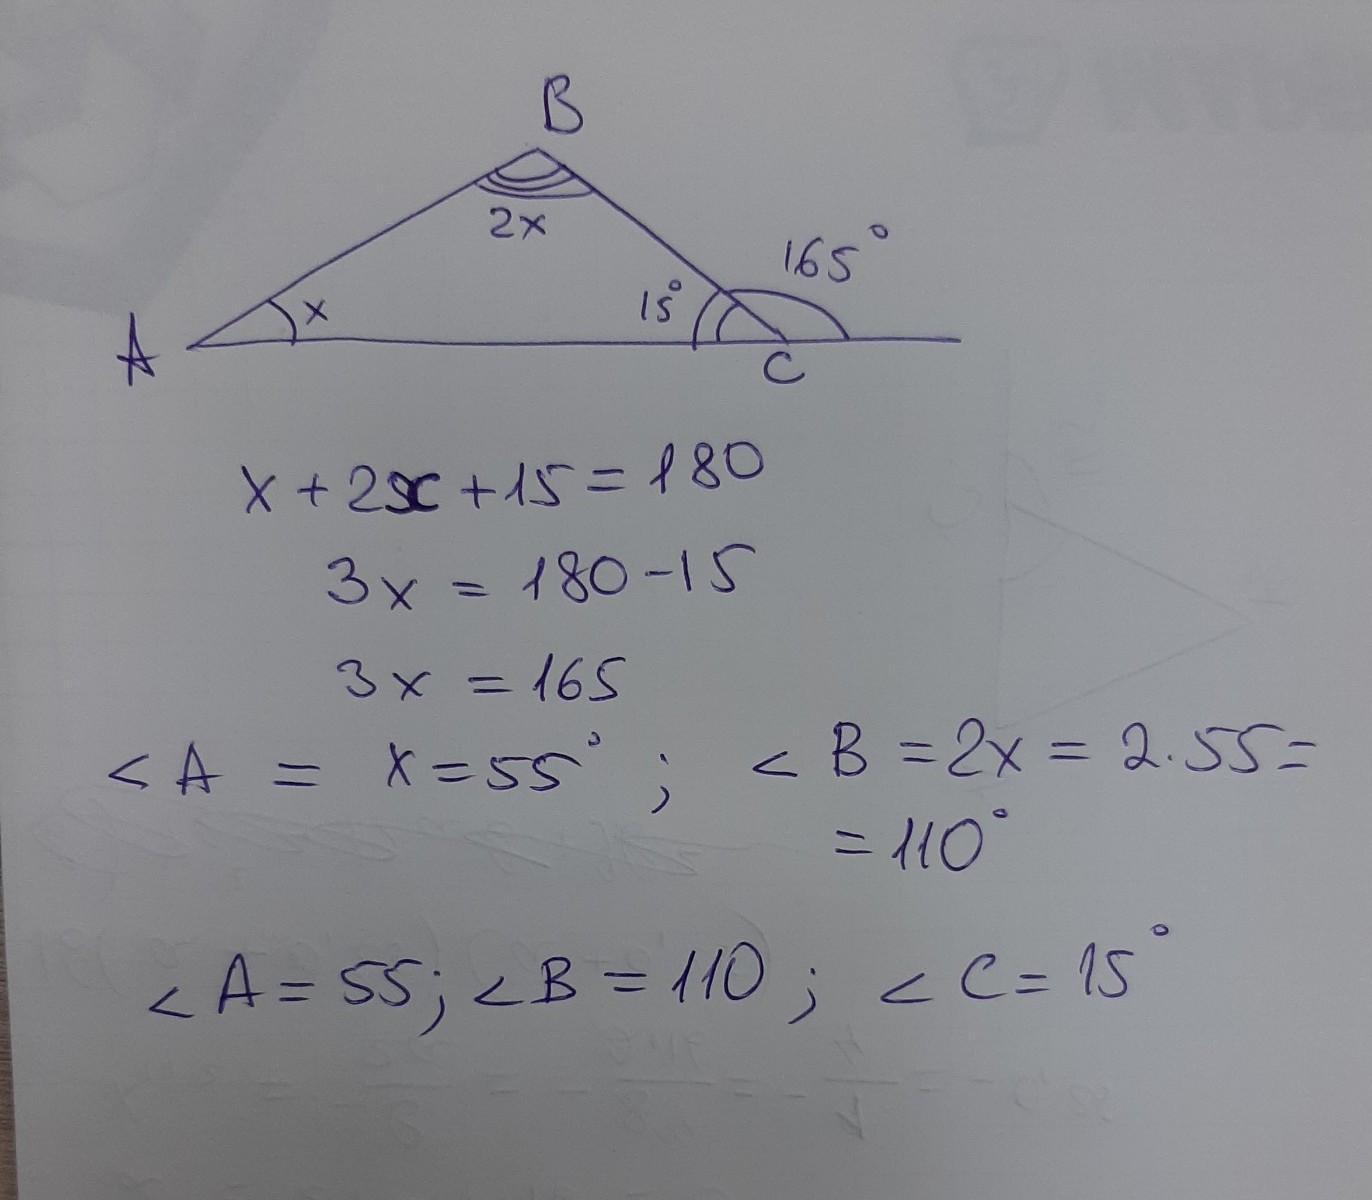 B
2x
165°
15°
x
A
C
x + 2x + 15 = 180
3x = 180 - 15
3x = 165
<A = x = 55° ; <B = 2x = 2·55 =
= 110°
<A = 55; <B = 110 ; <C = 15°